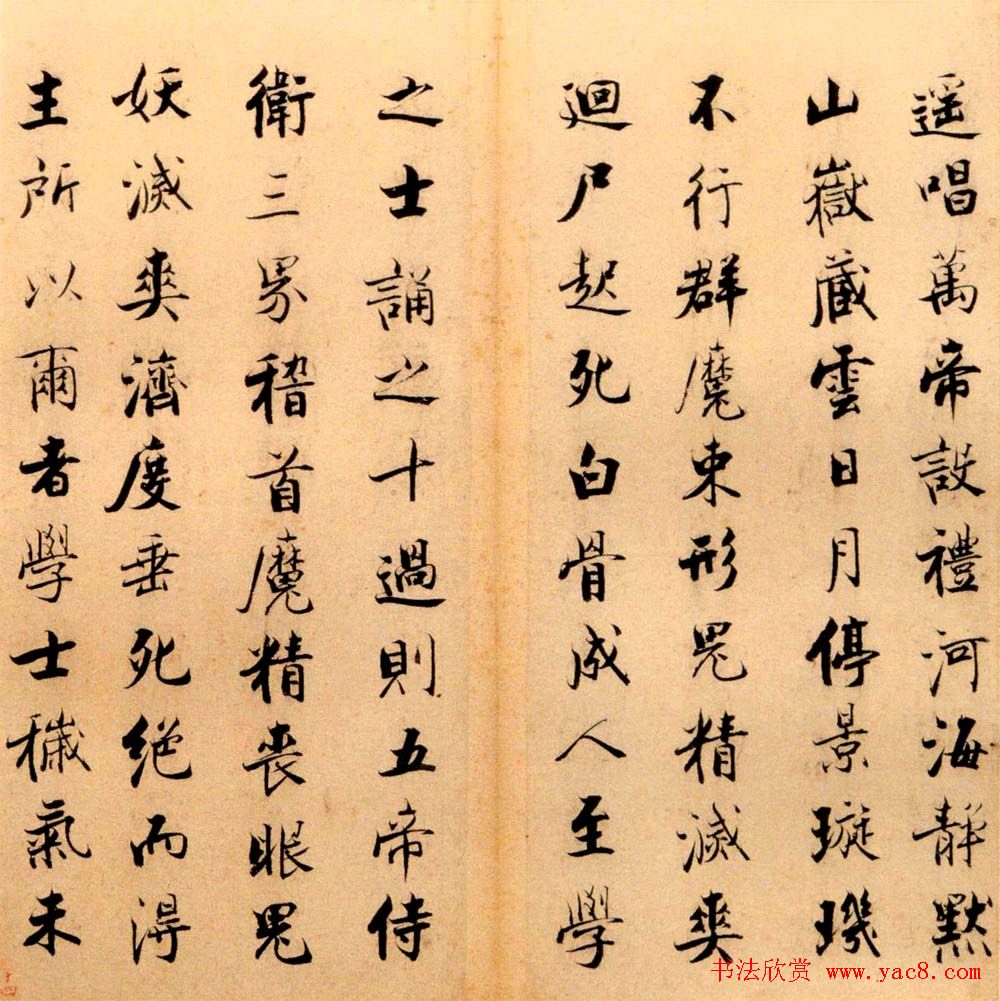 遥唱萬帝設禮河海靜默
山嶽藏雲日月停景璇璣
不行群魔束形鬼精滅爽
廻尸起死白骨成人至學
之士誦之十過則五帝侍
衛三界稽首魔精喪眼鬼
妖滅爽濟度垂死絕而得
生所以爾者學士穢氣未
十四
书法欣赏 www.yac8.com